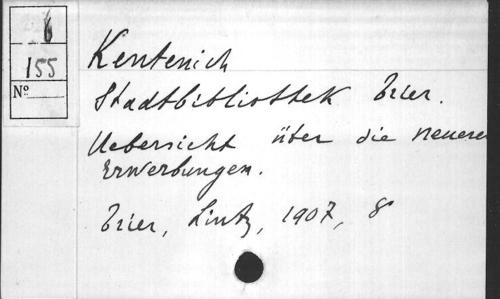 6
155
Nº
Kentenich
Stadtbibliothek Trier.
Uebersicht über die neueren
Erwerbungen.
Trier, Lintz, 1907, 8